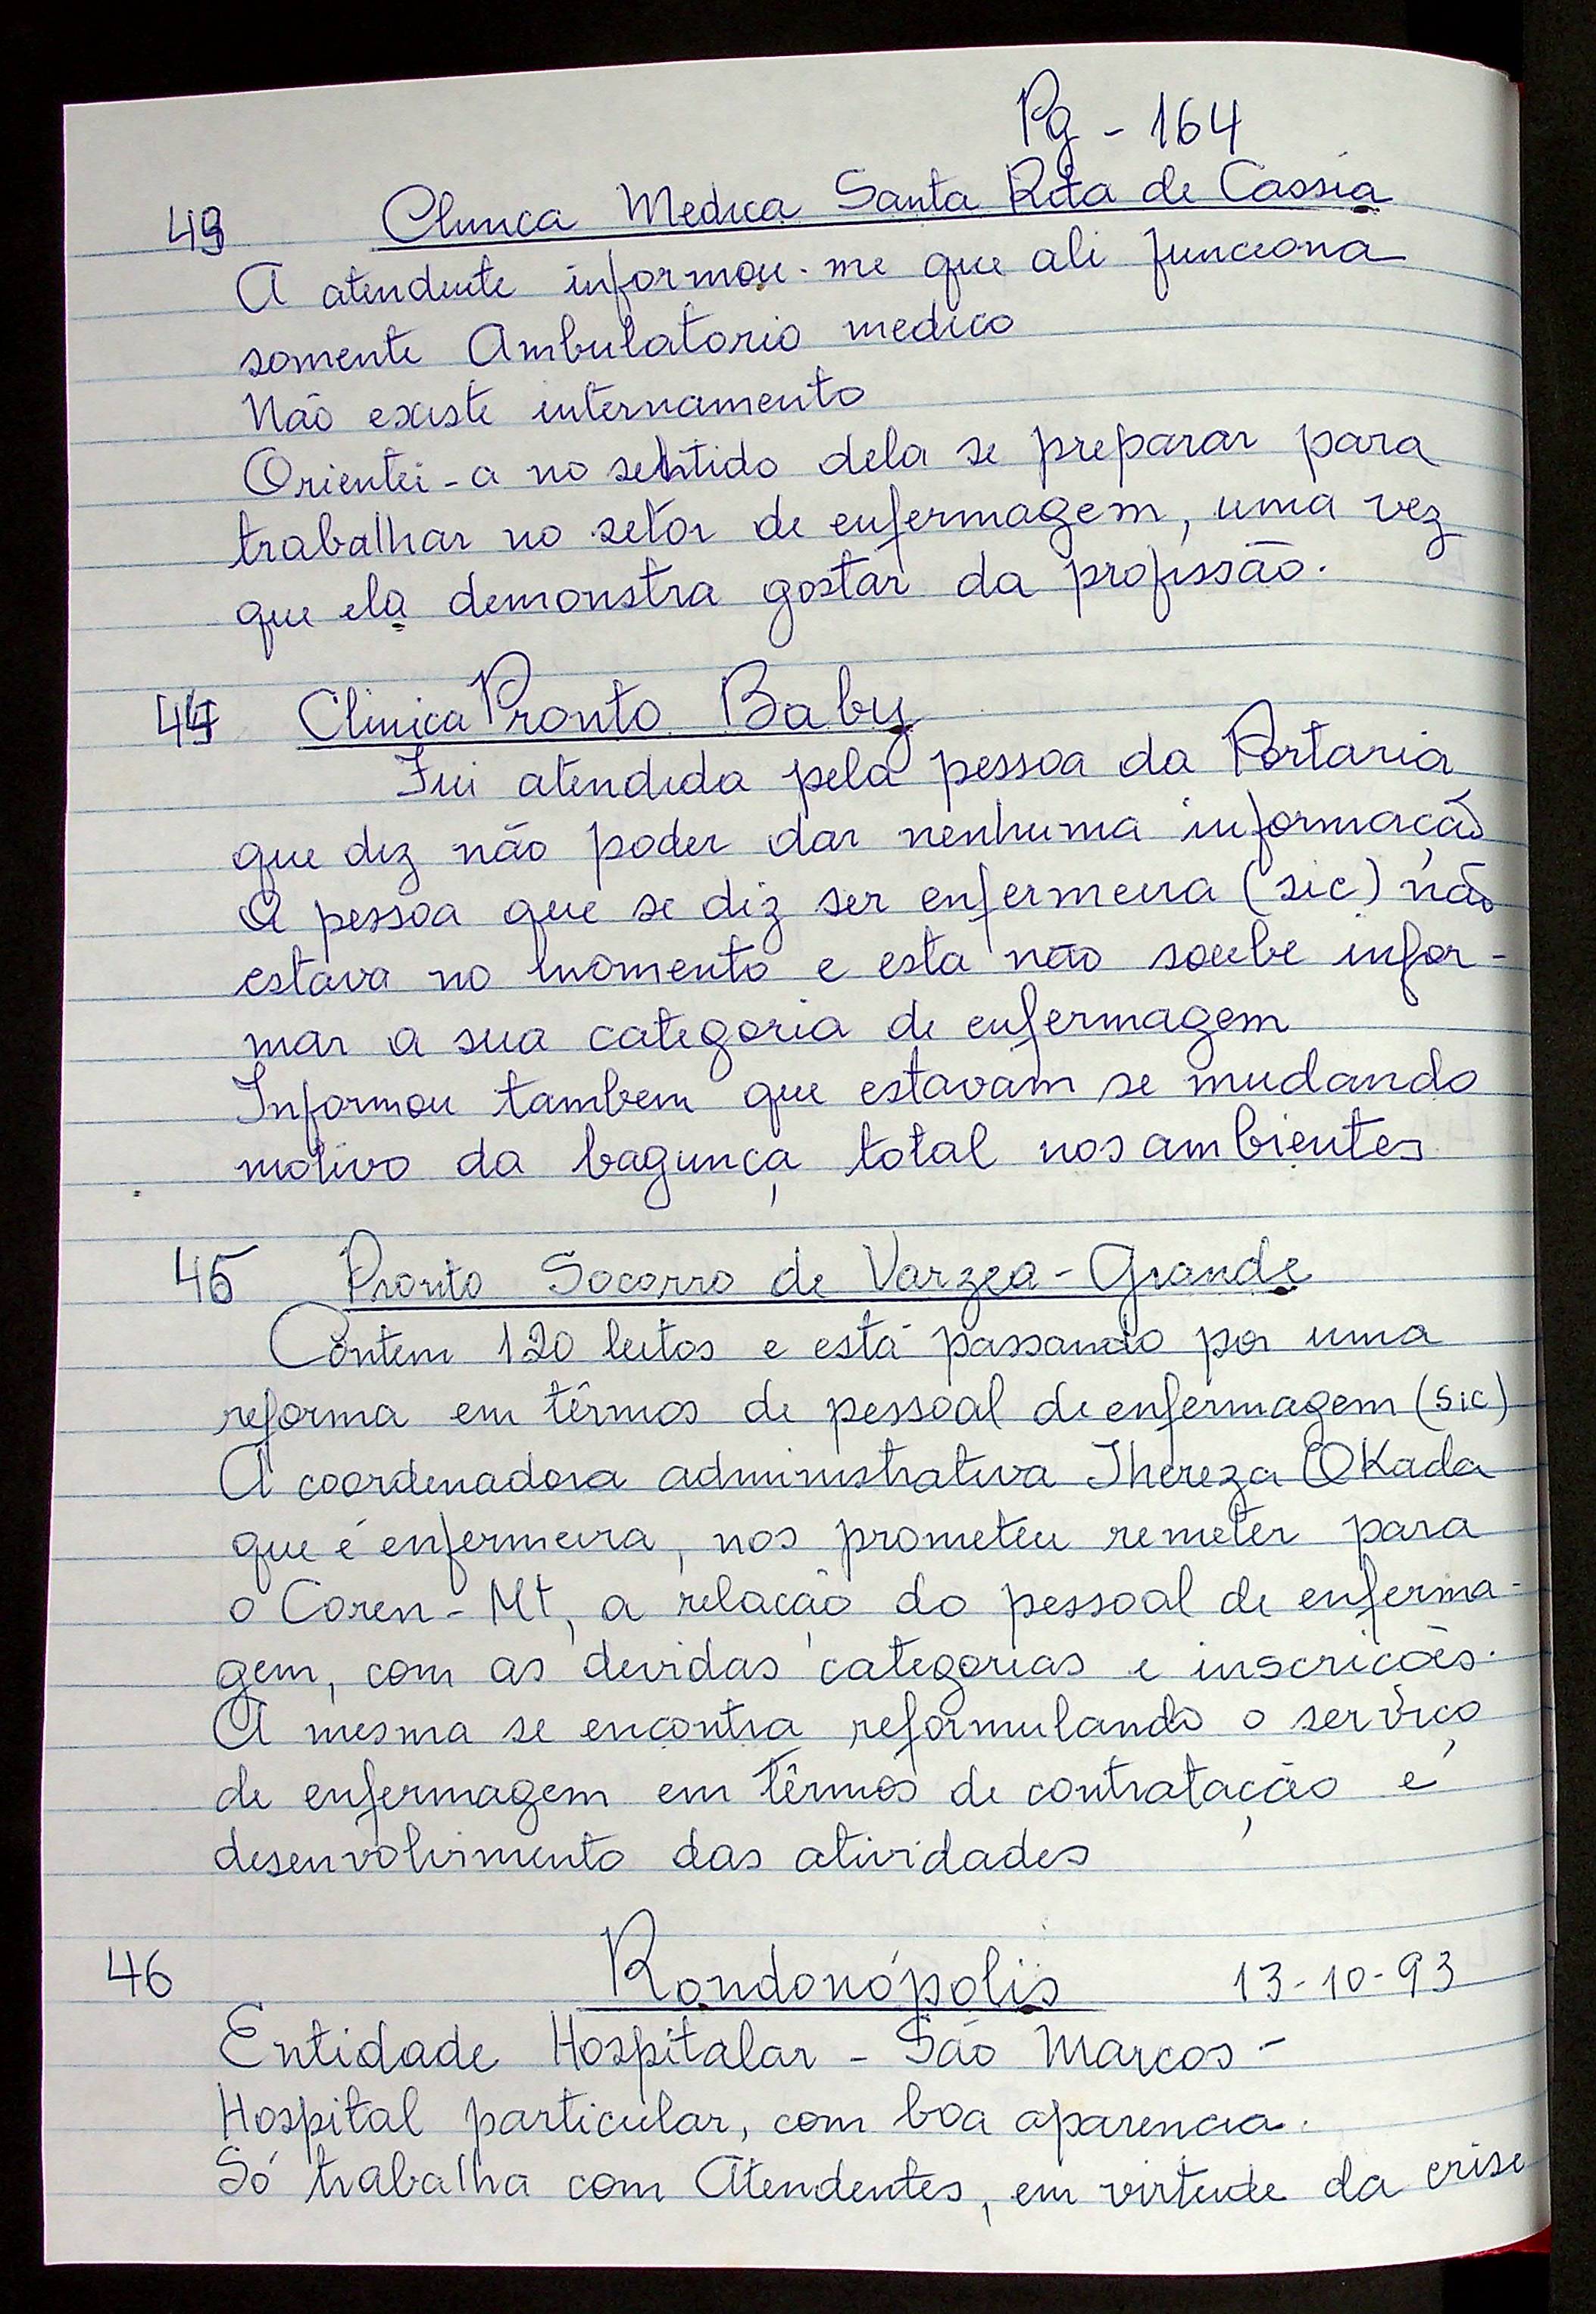 Pg - 164
43 Clinica Medica Santa Rita de Cassia
A atendente informou-me que ali funciona
somente Ambulatorio medico
Não existe internamento
Orientei-a no sentido dela se preparar para
trabalhar no setor de enfermagem, uma vez
que ela demonstra gostar da profissão.
44 Clinica Pronto Baby
Fui atendida pela pessoa da Portaria
que diz não poder dar nenhuma informação
A pessoa que se diz ser enfermeira (sic) não
estava no momento e esta não soube infor-
mar a sua categoria de enfermagem
Informou tambem que estavam se mudando
motivo da bagunça total nos ambientes
45 Pronto Socorro de Varzea-Grande
Contem 120 leitos e está passando por uma
reforma em têrmos de pessoal de enfermagem (sic)
A coordenadora administrativa Thereza Okada
que é enfermeira, nos prometeu remeter para
o Coren-Mt, a relação do pessoal de enferma-
gem, com as devidas categorias e inscrições.
A mesma se encontra reformulando o serviço
de enfermagem em têrmos de contratação e
desenvolvimento das atividades
46 Rondonópolis 13-10-93
Entidade Hospitalar - São Marcos -
Hospital particular, com boa aparencia.
Só trabalha com Atendentes, em virtude da crise